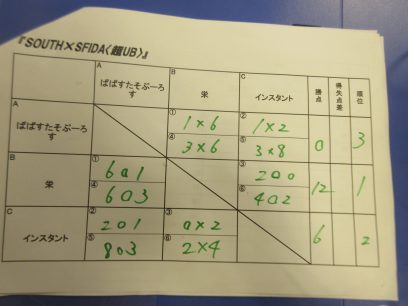 『SOUTH×SFIDA〈超UB〉』
A ぱぱすたそぶーろす B 栄 C インスタント 勝点 得失点差 順位
A ぱぱすたそぶーろす ① 1×6 ② 1×2 0 3
④ 3×6 ⑤ 3×8
B 栄 ① 6○1 ③ 2○0 12 1
④ 6○3 ⑥ 4○2
C インスタント ② 2○1 ③ 0×2 6 2
⑤ 8○3 ⑥ 2×4